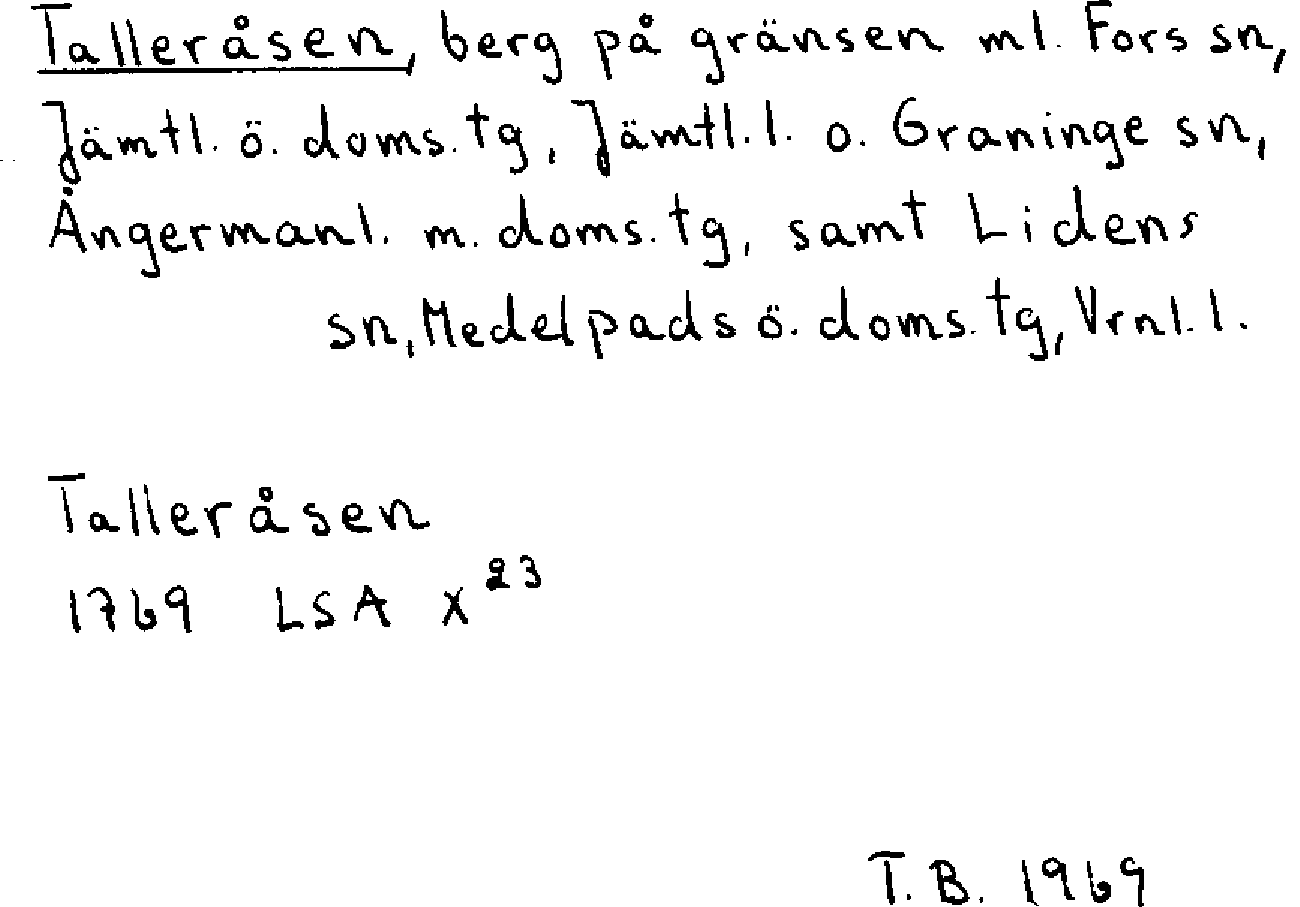 Talleråsen, berg på gränsen ml. Fors sn,
Jämtl. ö. doms. tg, Jämtl. l. o. Graninge sn,
Ångermanl. m. doms. tg, samt Lidens
sn, Medelpads ö. doms. tg, Vrnl. l.
Talleråsen
1769 LSA X²³
T. B. 1969